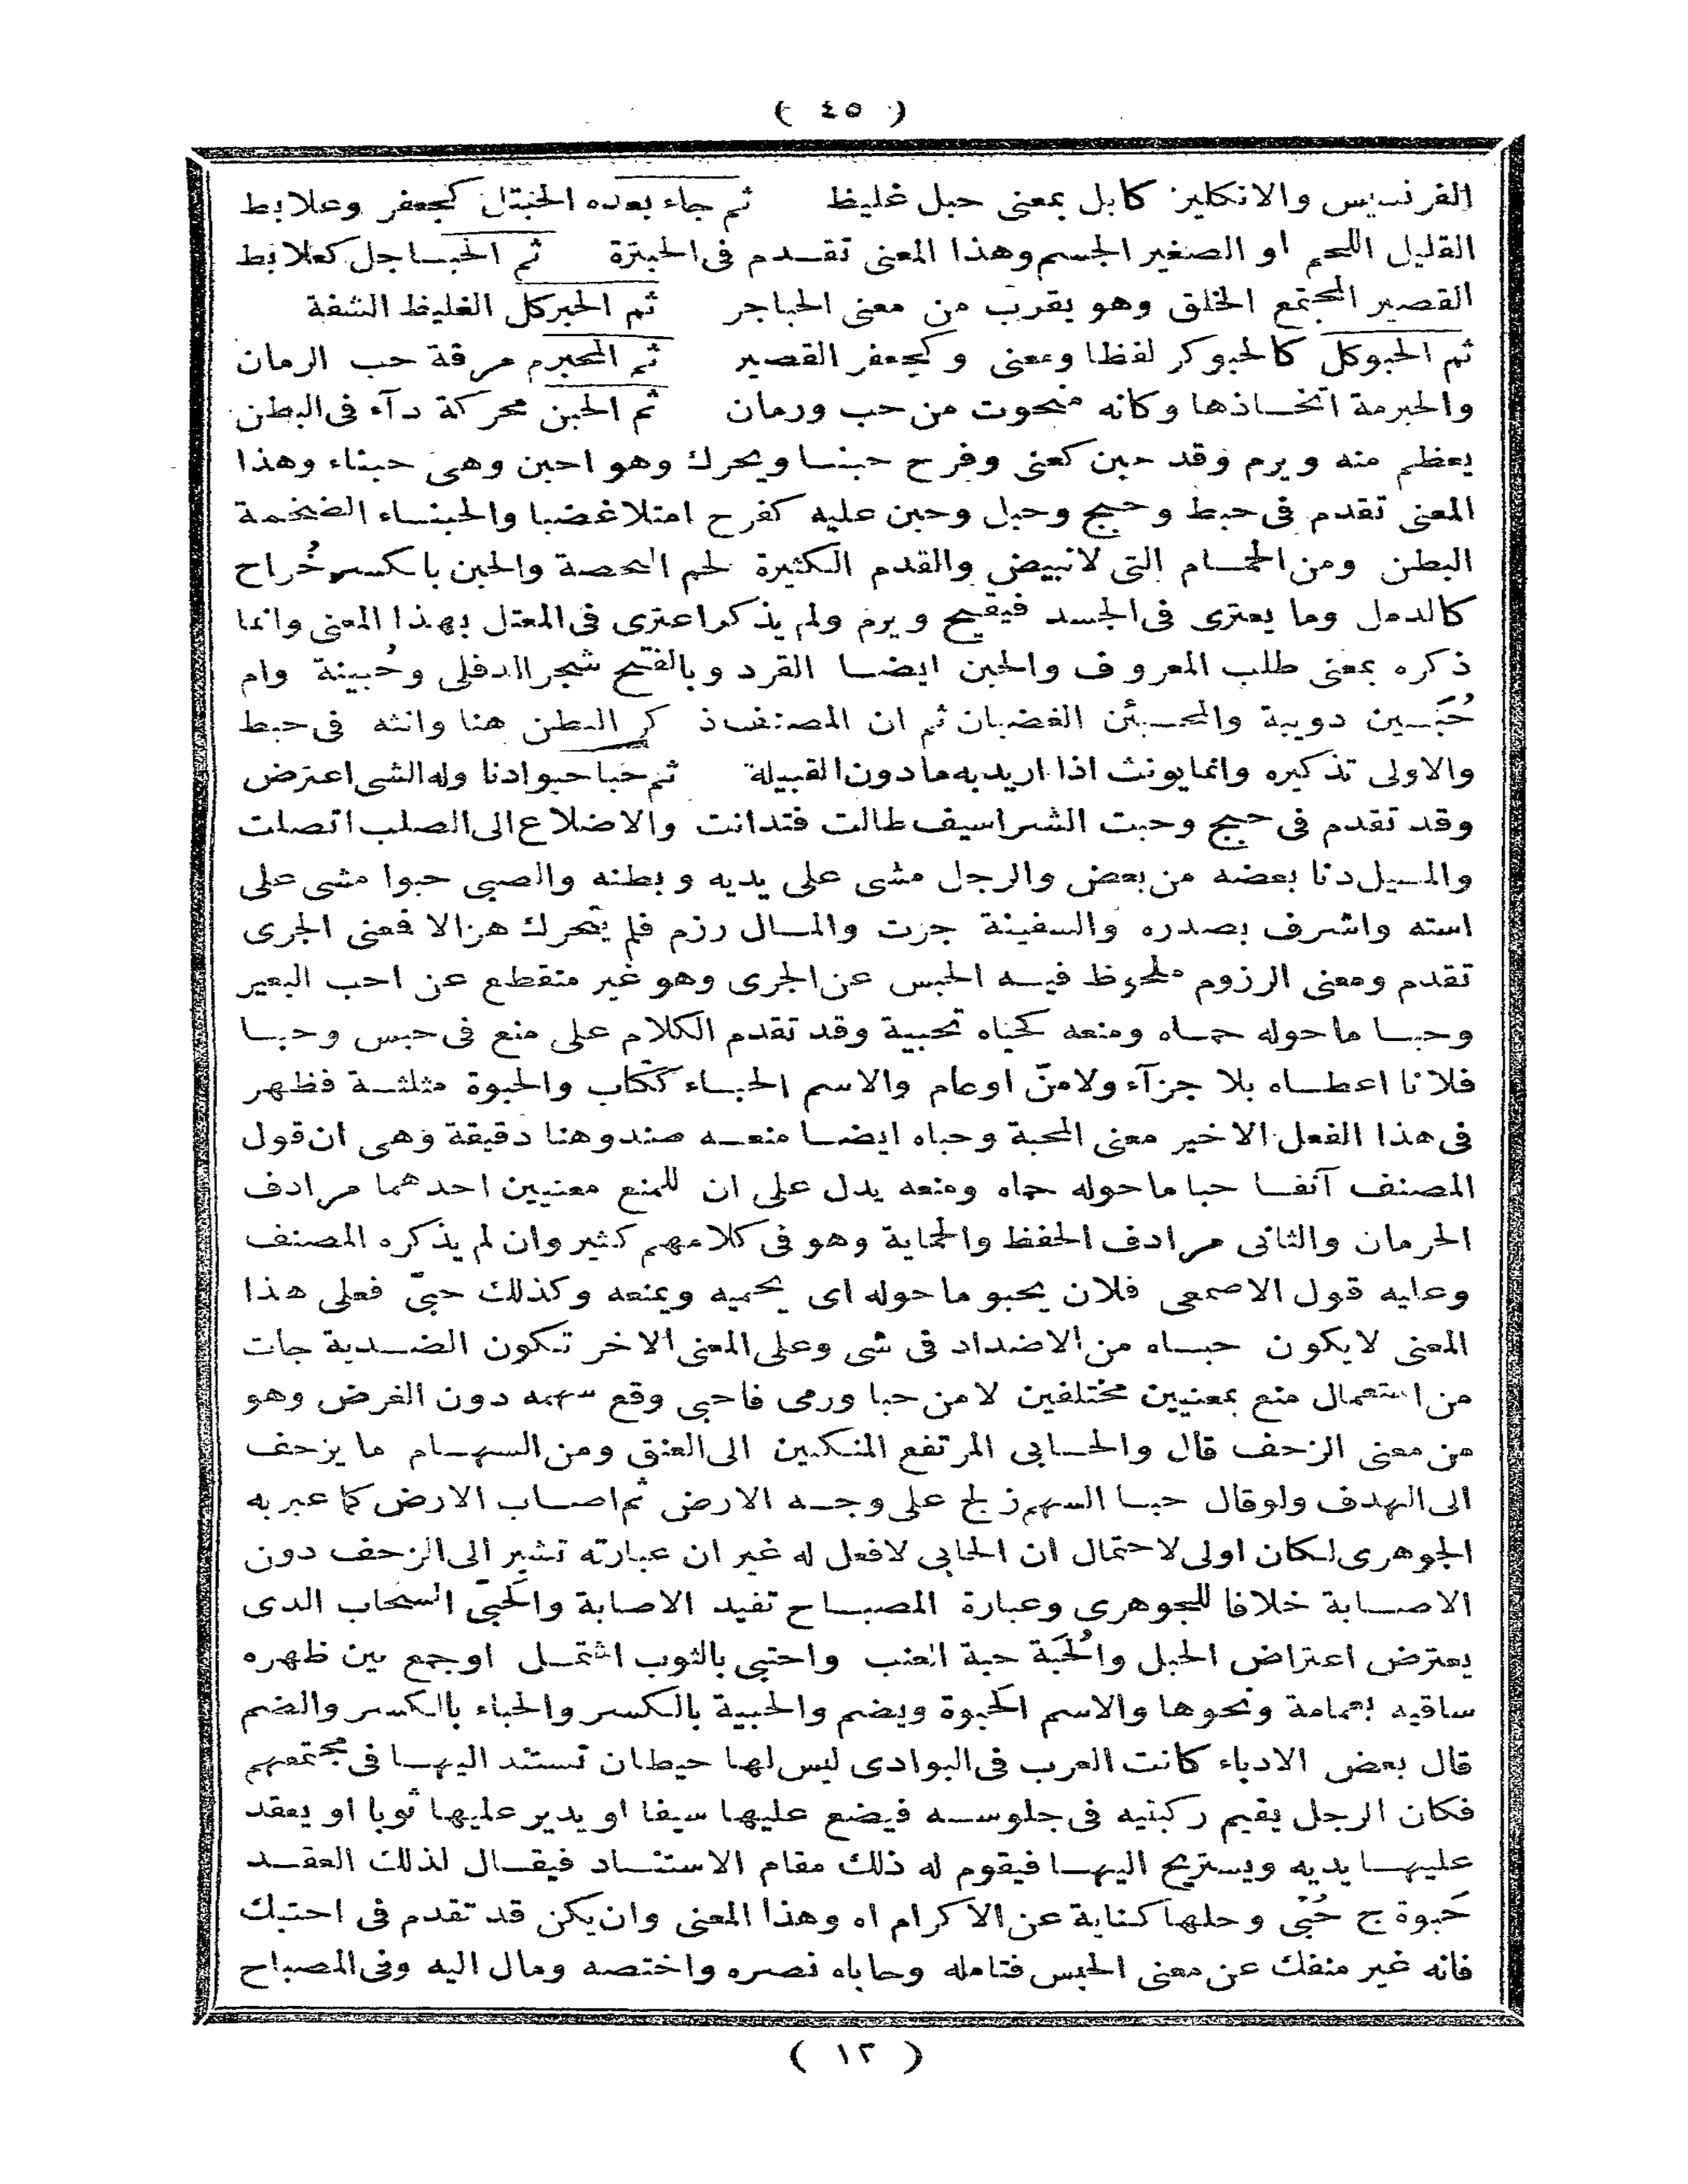 ( ٤٥ )
الفرنسيس والانكليز كابل بمعنى حبل غليظ ثم جاء بعده الحبتل كجعفر وعلابط
القليل اللحم او الصغير الجسم وهذا المعنى تقدم فى الحبترة ثم الحباجل كعلابط
القصير المجتمع الخلق وهو يقرب من معنى الحباجر ثم الحبركل الغليظ الشفة
ثم الحبوكل كالحبوكر لفظا ومعنى وكجعفر القصير ثم المحبرم مرقة حب الرمان
والحبرمة اتخاذها وكانه منحوت من حب ورمان ثم الحبن محركة دآء فى البطن
يعظم منه ويرم وقد حبن كعنى وفرح حبنا ويحرك وهو احبن وهى حبناء وهذا
المعنى تقدم فى حبط وحبج وحبل وحبن عليه كفرح امتلا غضبا والحبناء الضخمة
البطن ومن الحمام التى لاتبيض والقدم الكثيرة لحم البخصة والحبن بالكسر خُراج
كالدمل وما يعترى فى الجسد فيقيح ويرم ولم يذكر اعترى فى المعتل بهذا المعنى وانما
ذكره بمعنى طلب المعروف والحبن ايضا القرد وبالفتح شجر الدفلى وحُبينة وام
حُبَين دويبة والمحبئن الغضبان ثم ان المصنف ذكر البطن هنا وانثه فى حبط
والاولى تذكيره وانما يونث اذا اريد به ما دون القبيلة ثم حبا حبوا دنا وله الشى اعترض
وقد تقدم فى حبج وحبت الشراسيف طالت فتدانت والاضلاع الى الصلب اتصلت
والمسيل دنا بعضه من بعض والرجل مشى على يديه وبطنه والصبى حبوا مشى على
استه واشرف بصدره والسفينة جرت والمال رزم فلم يتحرك هزالا فمعنى الجرى
تقدم ومعنى الرزوم ملحوظ فيه الحبس عن الجرى وهو غير منقطع عن احب البعير
وحبا ماحوله حماه ومنعه كحباه تحبية وقد تقدم الكلام على منع فى حبس وحبا
فلانا اعطاه بلا جزآء ولامنّ اوعام والاسم الحباء ككتاب والحبوة مثلثة فظهر
فى هذا الفعل الاخير معنى المحبة وحباه ايضا منعه ضد وهنا دقيقة وهى ان قول
المصنف آنفا حبا ماحوله حماه ومنعه يدل على ان للمنع معنيين احدهما مرادف
الحرمان والثانى مرادف الحفظ والحماية وهو فى كلامهم كثير وان لم يذكره المصنف
وعليه قول الاصمعى فلان يحبو ماحوله اى يحميه ويمنعه وكذلك حبّى فعلى هذا
المعنى لايكون حباه من الاضداد فى شى وعلى المعنى الاخر تكون الضدية جات
من استعمال منع بمعنيين مختلفين لامن حبا ورمى فاحبى وقع سهمه دون الغرض وهو
من معنى الزحف قال والحابى المرتفع المنكبين الى العنق ومن السهام ما يزحف
الى الهدف ولوقال حبا السهم زلج على وجه الارض ثم اصاب الارض كما عبر به
الجوهرى لكان اولى لاحتمال ان الحابى لافعل له غير ان عبارته تشير الى الزحف دون
الاصابة خلافا للجوهرى وعبارة المصباح تفيد الاصابة والحَبىّ السحاب الذى
يعترض اعتراض الجبل والحُبَة حبة العنب واحتبى بالثوب اشتمل اوجمع بين ظهره
ساقيه بعمامة ونحوها والاسم الحَبوة ويضم والحبية بالكسر والحباء بالكسر والضم
قال بعض الادباء كانت العرب فى البوادى ليس لها حيطان تستند اليها فى مجتمعهم
فكان الرجل يقيم ركبتيه فى جلوسه فيضع عليها سيفا او يدير عليها ثوبا او يعقد
عليها يديه ويستريح اليها فيقوم له ذلك مقام الاستناد فيقال لذلك العقد
حَبوة ج حُبًى وحلها كناية عن الاكرام اه وهذا المعنى وان يكن قد تقدم فى احتبك
فانه غير منفك عن معنى الحبس فتامله وحاباه نصره واختصه ومال اليه وفى المصباح
( ١٢ )